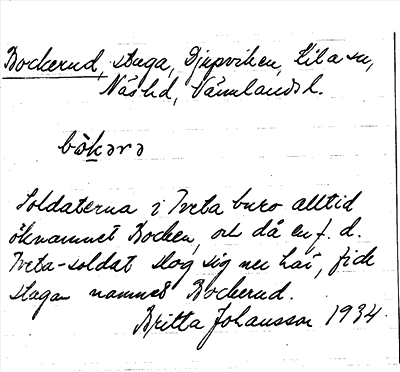 Bockerud, stuga, Djupviken, Kila sn,
Näs hd, Värmlands l.
bòkərə
Soldaterna i Tveta buro alltid
öknamnet Bocken, och då en f. d.
Tveta-soldat slog sig ner här, fick
stugan namnet Bockerud.
Britta Johansson 1934